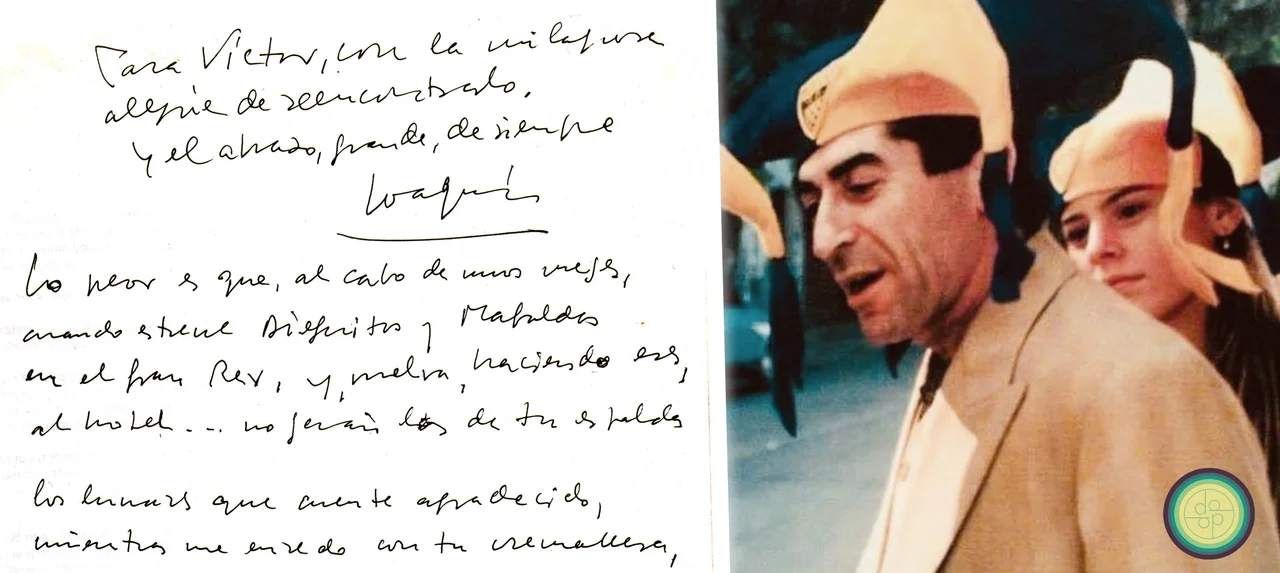 Para Víctor, con la milagrosa
alegría de reencontrarlo.
Y el abrazo, grande, de siempre
Joaquín
Lo peor es que, al cabo de unos meses,
cuando estrene Dieguitos y Mafaldas
en el gran Rex, y, vuelva, haciendo eses,
al hotel... no serán los de tu espalda
los lunares que cuente agradecido,
mientras me enredo con tu cremallera,
da
op